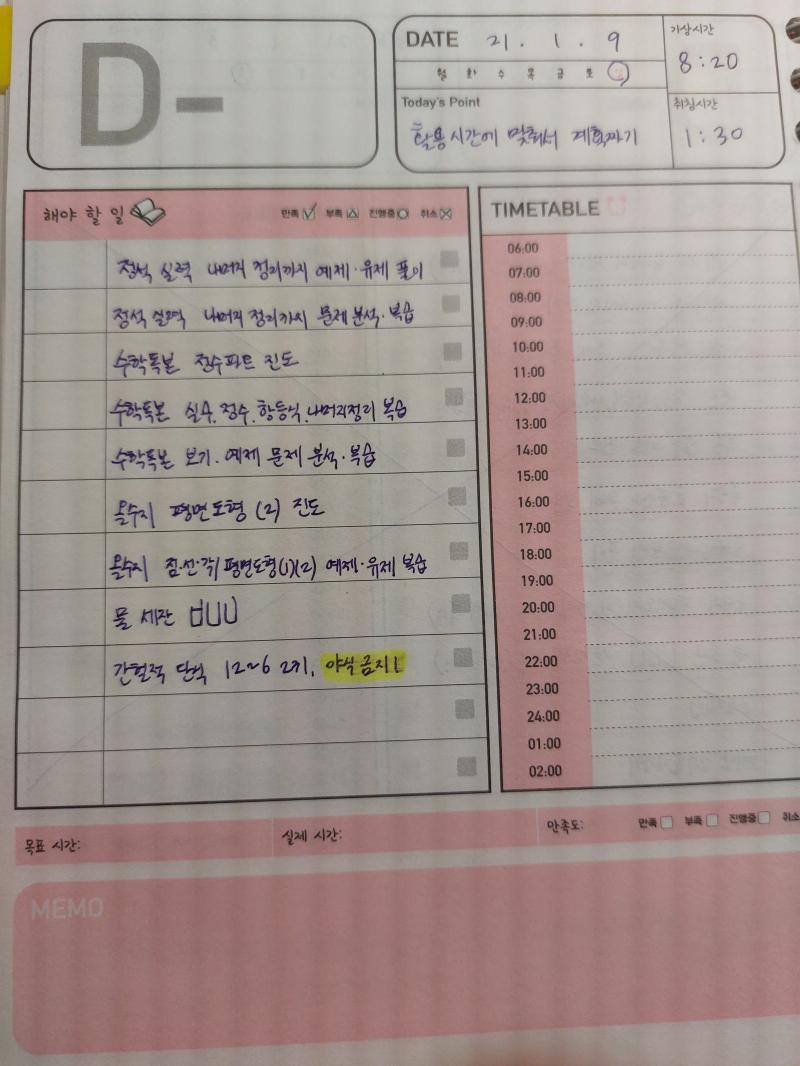 D-
DATE 21. 1. 9
월 화 수 목 금 토 일
Today's Point
활용시간에 맞춰서 계획짜기
기상시간
8:20
취침시간
1:30
해야 할 일 만족 부족 진행중 취소
정석 실력 나머지 정리까지 예제·유제 풀이
정석 실력 나머지 정리까지 문제 분석·복습
수학독본 정수파트 진도
수학독본 실수, 정수, 항등식, 나머지정리 복습
수학독본 보기·예제 문제 분석·복습
올수지 평면도형 (2) 진도
올수지 점·선·각/평면도형(1)(2) 예제·유제 복습
물 세잔
간헐적 단식 12~6 2끼, 야식금지!
TIMETABLE
06:00
07:00
08:00
09:00
10:00
11:00
12:00
13:00
14:00
15:00
16:00
17:00
18:00
19:00
20:00
21:00
22:00
23:00
24:00
01:00
02:00
목표 시간: 실제 시간: 만족도: 만족 부족 진행중 취소
MEMO